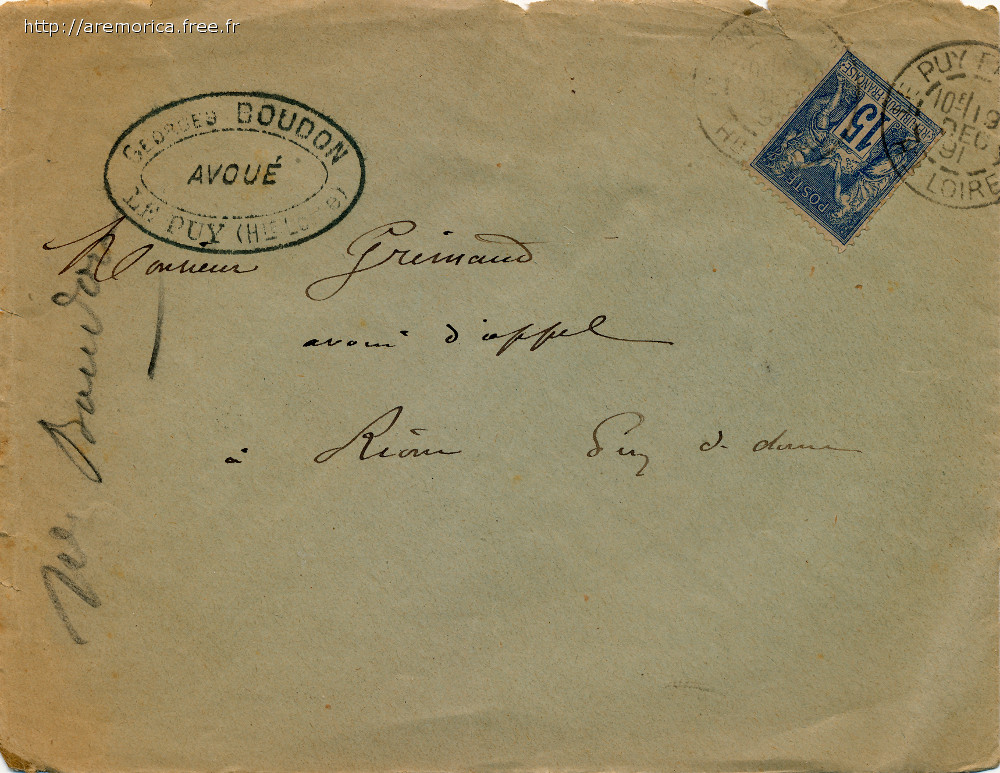 http://aremorica.free.fr
GEORGES BOUDON
AVOUÉ
LE PUY (Hte Loire)
15
POSTES
REPUBLIQUE FRANÇAISE
PUY
10E
DEC
91
LOIRE
Monsieur Grimaud
avoué d'appel
à Riom Puy de dome
Boudon